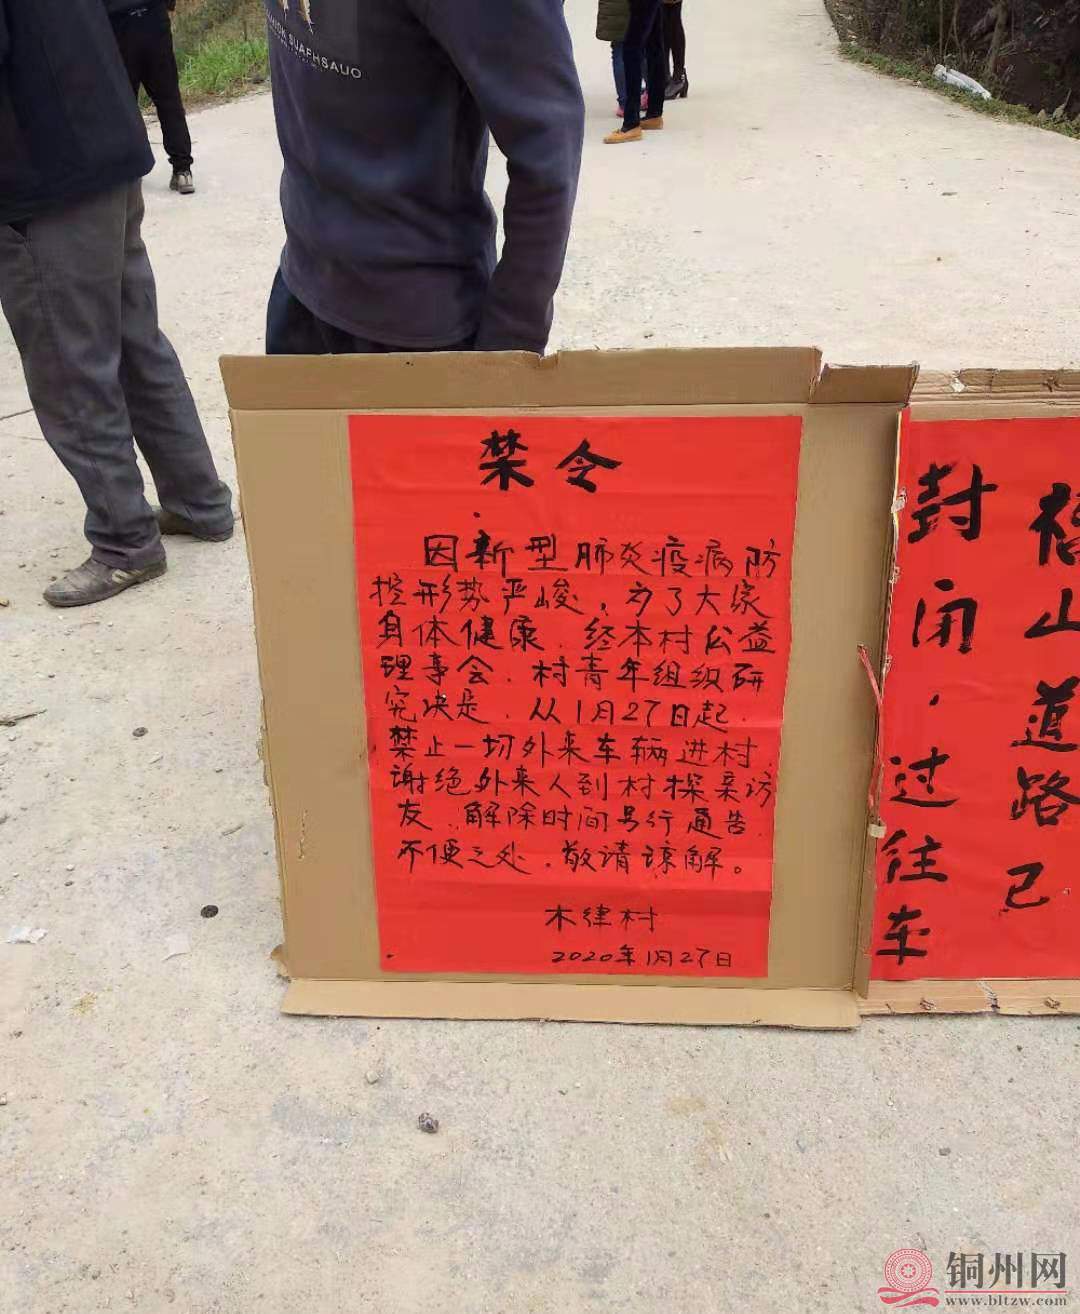 SUAFHSAUO
禁令
因新型肺炎疫病防
控形势严峻，为了大家
身体健康，经本村公益
理事会、村青年组织研
究决定，从1月27日起，
禁止一切外来车辆进村，
谢绝外来人到村探亲访
友，解除时间另行通告，
不便之处，敬请谅解。
木律村
2020年1月27日
福山道路已
封闭，过往车
铜州网
www.bltzw.com